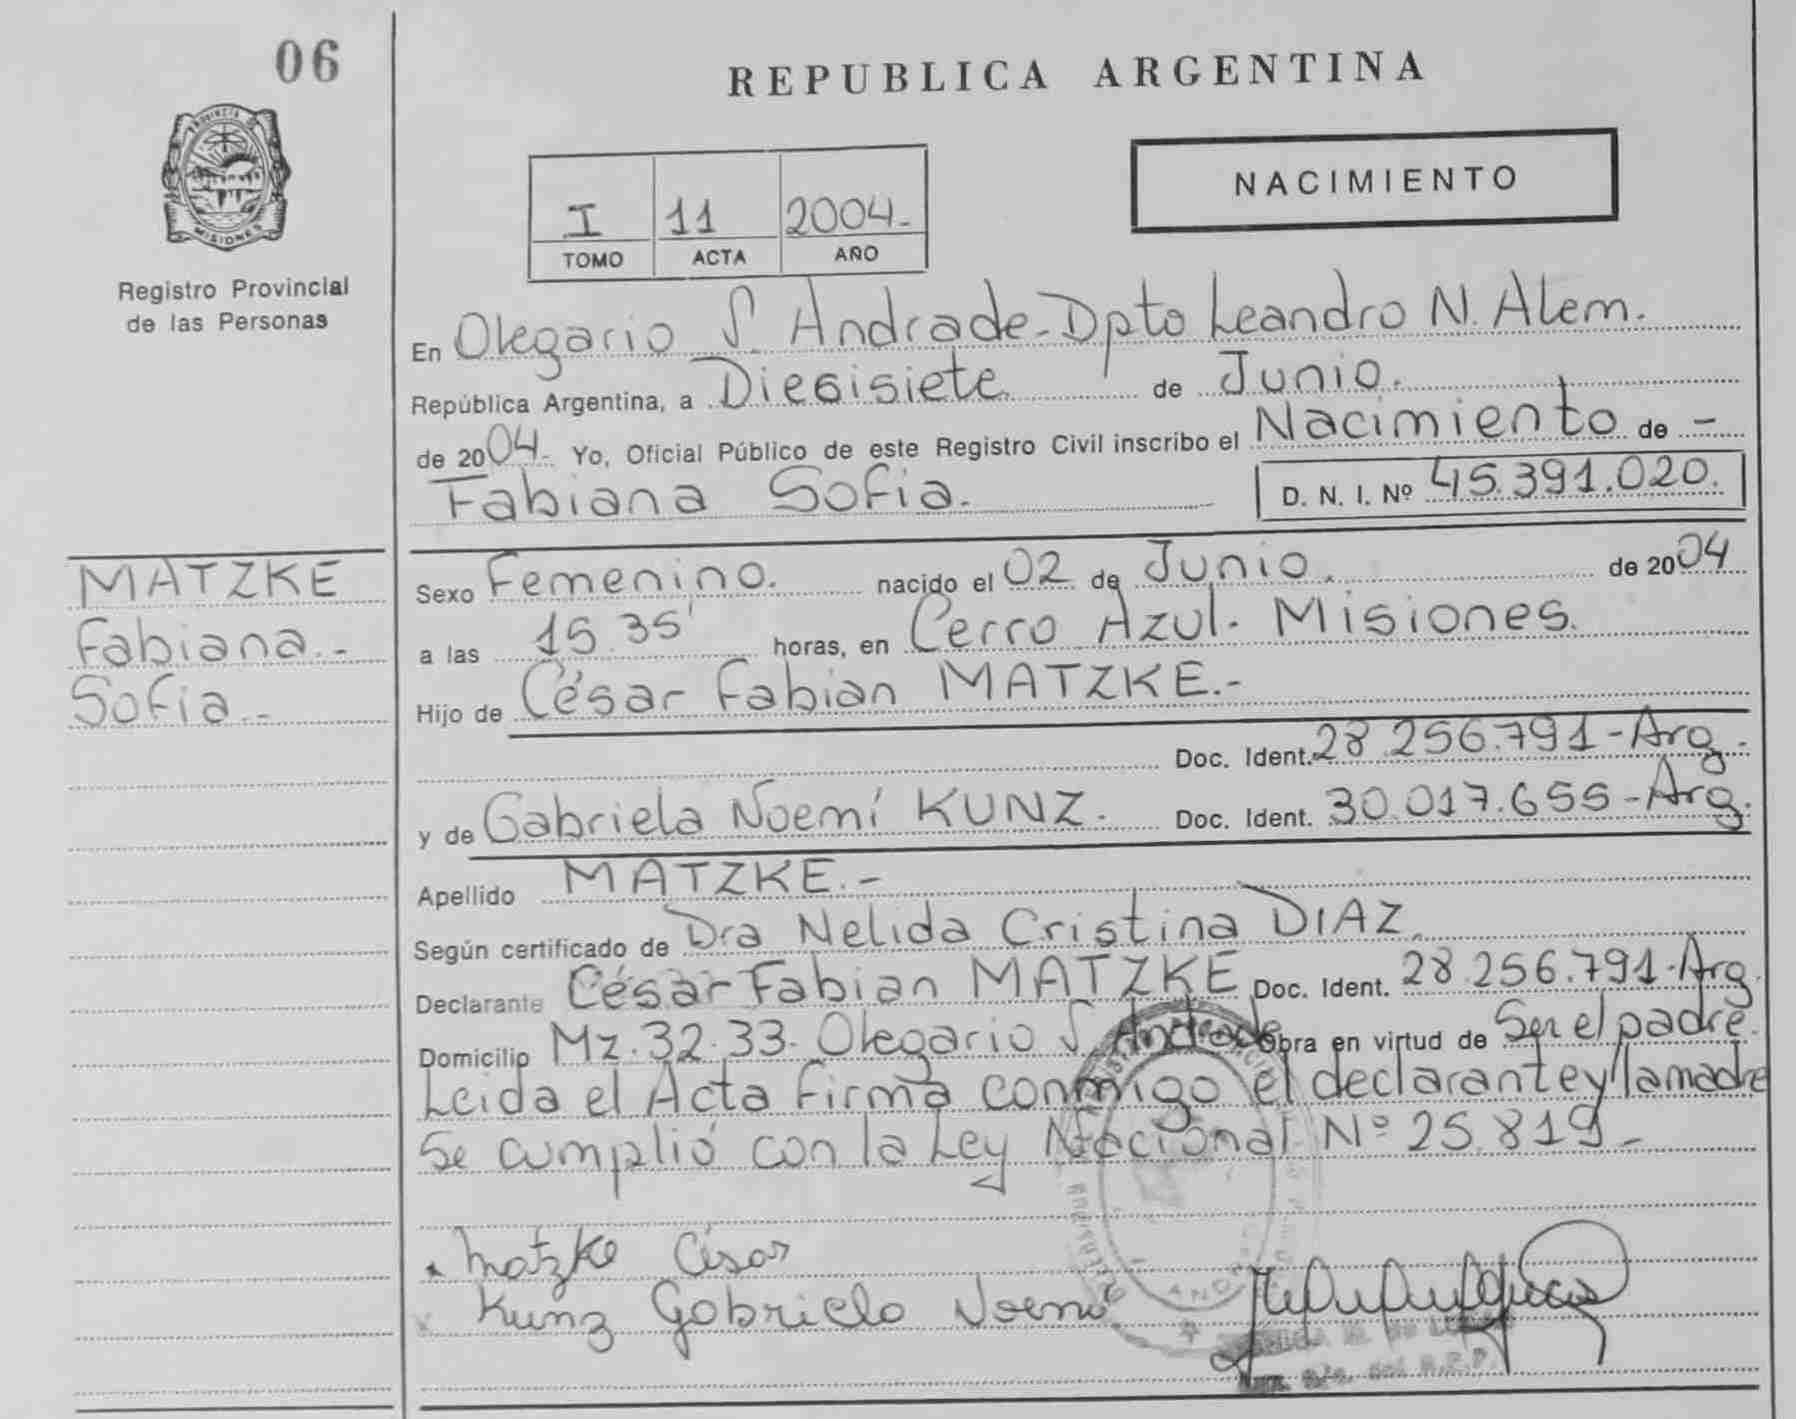 06
REPUBLICA ARGENTINA
PROVINCIA DE
MISIONES
Registro Provincial
de las Personas
I 11 2004.-
TOMO ACTA AÑO
NACIMIENTO
En Olegario V. Andrade-Dpto Leandro N. Alem.
República Argentina, a Diesisiete de Junio.
de 2004.- Yo, Oficial Público de este Registro Civil inscribo el Nacimiento de -
Fabiana Sofia. D. N. I. Nº 45.391.020.
MATZKE
Fabiana.-
Sofia.-
Sexo Femenino. nacido el 02 de Junio. de 2004
a las 15.35' horas, en Cerro Azul. Misiones.
Hijo de César Fabian MATZKE.-
Doc. Ident. 28.256.791-Arg.
y de Gabriela Noemí KUNZ. Doc. Ident. 30.017.655-Arg.
Apellido MATZKE.-
Según certificado de Dra Nelida Cristina DIAZ.
Declarante César Fabian MATZKE Doc. Ident. 28.256.791-Arg.
Domicilio Mz.32.33. Olegario V. Andrade Obra en virtud de Ser el padre.
Leida el Acta firma conmigo el declarante y la madre
Se cumplió con la Ley Nacional Nº 25.819-
Matzke César
Kunz Gabriela Noemi